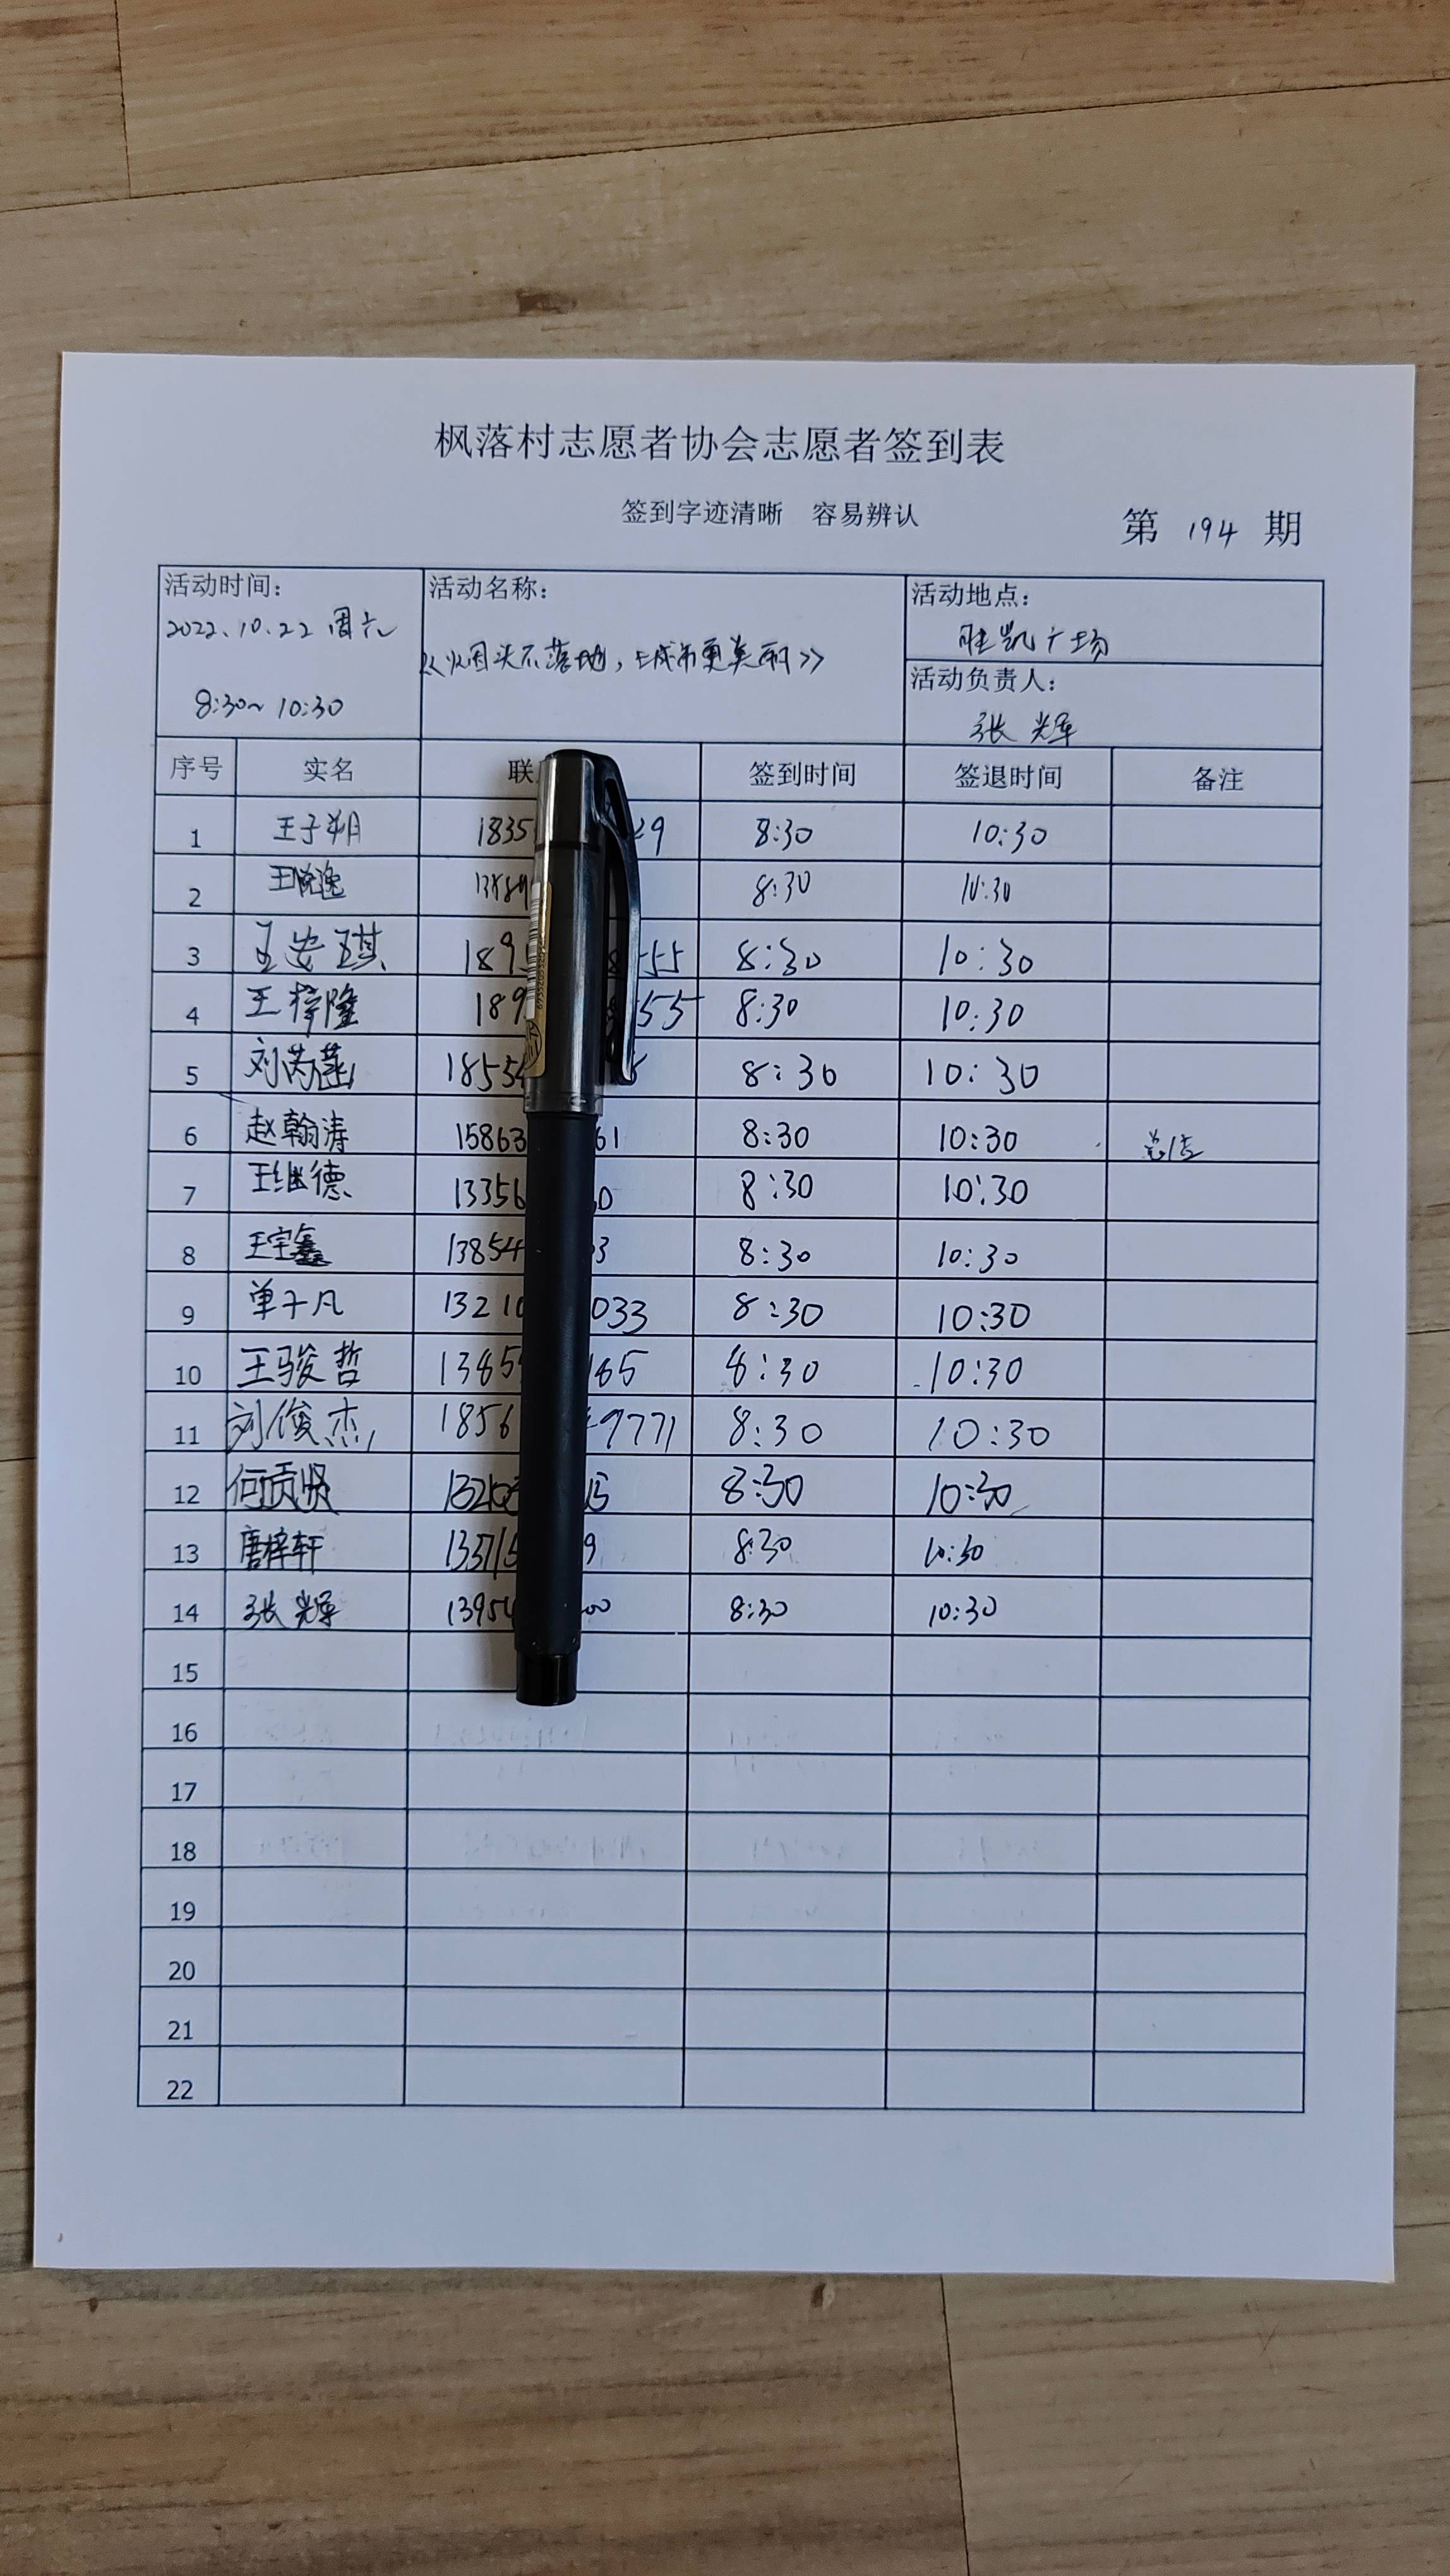 枫落村志愿者协会志愿者签到表
签到字迹清晰 容易辨认
第 194 期
活动时间：
2022.10.22 周六
8:30~10:30
活动名称：
《烟头不落地，城市更美丽》
活动地点：
胜凯广场
活动负责人：
张辉
序号 实名 联 签到时间 签退时间 备注
1 王子朔 1835 29 8:30 10:30
2 8:30 10:30
3 王安琪 189 55 8:30 10:30
4 王梓隆 189 55 8:30 10:30
5 刘芮菡 1855 8:30 10:30
6 赵翰涛 15863 61 8:30 10:30 总结
7 王继德 13356 0 8:30 10:30
8 王宇鑫 13854 3 8:30 10:30
9 单子凡 13210 033 8:30 10:30
10 王骏哲 1385 165 8:30 10:30
11 刘俊杰 1856 9771 8:30 10:30
12 何贡贤 8:30 10:30
13 唐梓轩 13371 9 8:30 10:30
14 张辉 1395 00 8:30 10:30
15
16
17
18
19
20
21
22